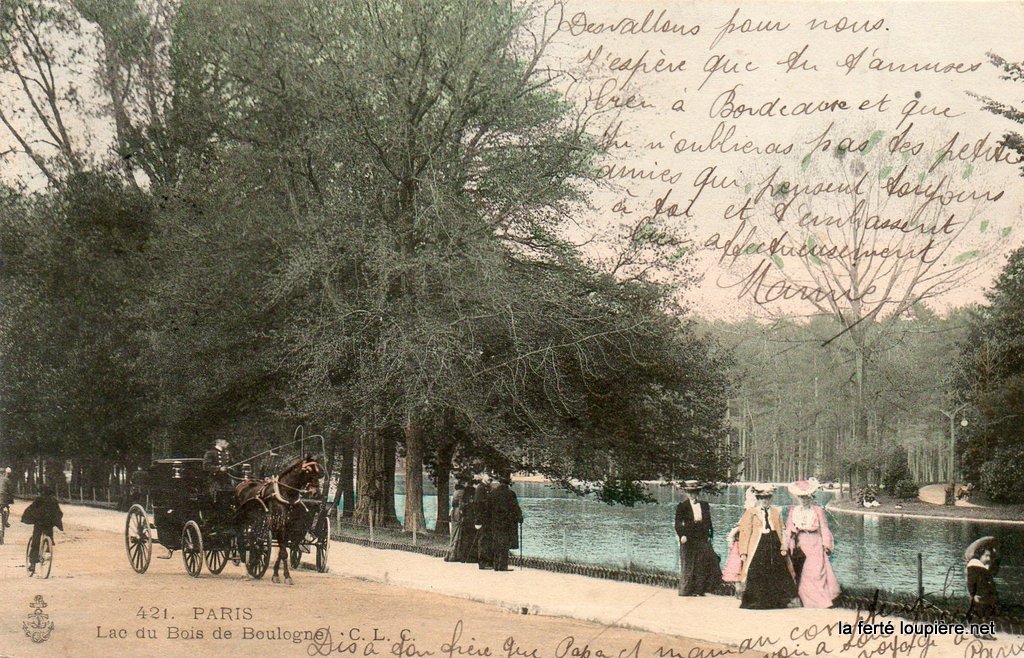 Desvallons pour nous.
J'espère que tu t'amuses
bien à Bordeaux et que
tu n'oublieras pas tes petites
amies qui pensent toujours
à toi et t'embrassent
affectueusement
Mannie
421. PARIS
Lac du Bois de Boulogne. C. L. C.
Dis à ton père que Papa et maman
voyage à Paris
la ferté loupière.net